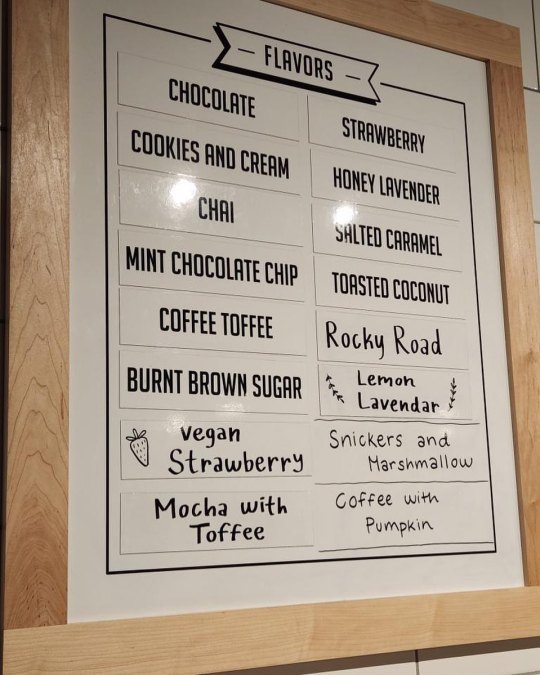 FLAVORS
CHOCOLATE
COOKIES AND CREAM
CHAI
MINT CHOCOLATE CHIP
COFFEE TOFFEE
BURNT BROWN SUGAR
vegan
Strawberry
Mocha with
Toffee
STRAWBERRY
HONEY LAVENDER
SALTED CARAMEL
TOASTED COCONUT
Rocky Road
Lemon
Lavendar
Snickers and
Marshmallow
Coffee with
Pumpkin